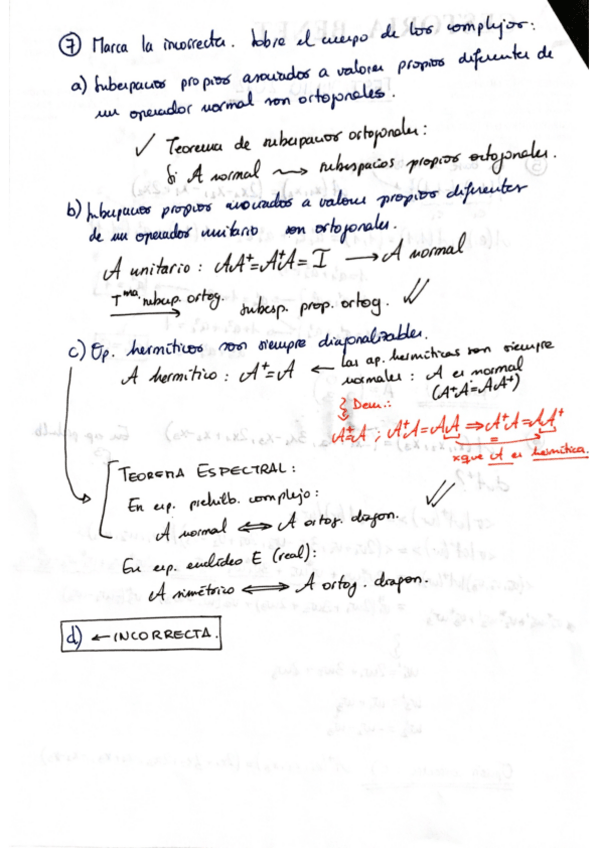 ⑦ Marca la incorrecta. Sobre el cuerpo de los complejos:
a) Subespacios propios asociados a valores propios diferentes de
un operador normal son ortogonales.
✓ Teorema de subespacios ortogonales:
Si A normal ⇝ subespacios propios ortogonales.
b) Subespacios propios asociados a valores propios diferentes
de un operador unitario son ortogonales.
A unitario : AA⁺=A⁺A= I → A normal
Tᵐᵃ. subesp. ortog. → subesp. prop. ortog. ✓
c) Op. hermíticos son siempre diagonalizables.
A hermítico : A⁺=A ← Las ap. hermíticas son siempre
normales : A es normal
(A⁺A=AA⁺)
Dem.:
A⁺=A ; A⁺A=AA ⇒ A⁺A=AA⁺
=
xque A es hermítica.
TEOREMA ESPECTRAL :
En esp. prehilb. complejo :
A normal ⟺ A ortog. diagon. ✓
En esp. euclídeo E (real) :
A simétrico ⟺ A ortog. diagon.
d) ← INCORRECTA.